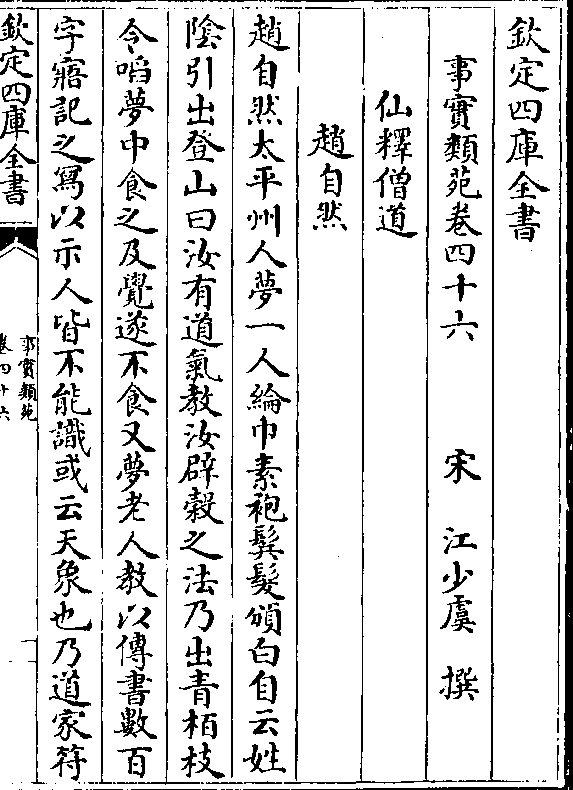 欽定四庫全書
事實類苑卷四十六 宋 江少虞 撰
仙釋僧道
趙自然
趙自然太平州人夢一人綸巾素袍鬂髮頒白自云姓
陰引出登山曰汝有道氣教汝辟穀之法乃出青栢枝
令啗夢中食之及覺遂不食又夢老人教以傳書數百
字寤記之寫以示人皆不能識或云天象也乃道家符
欽定四庫全書
事實類苑
卷四十六
一